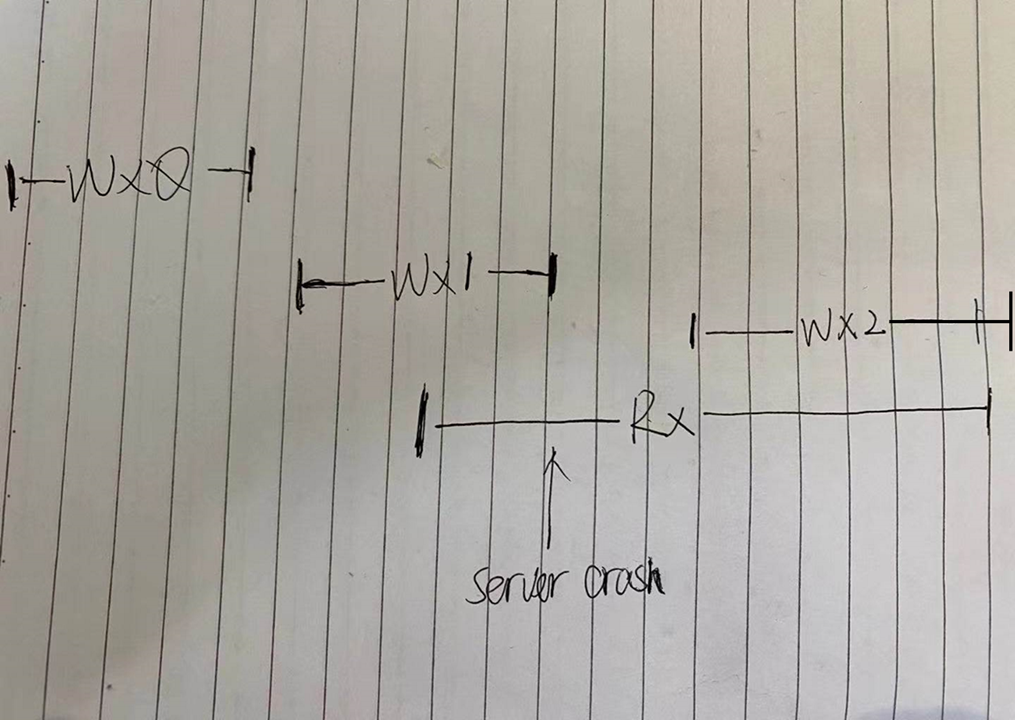 Wx0
Wx1
Wx2
Rx
server crash